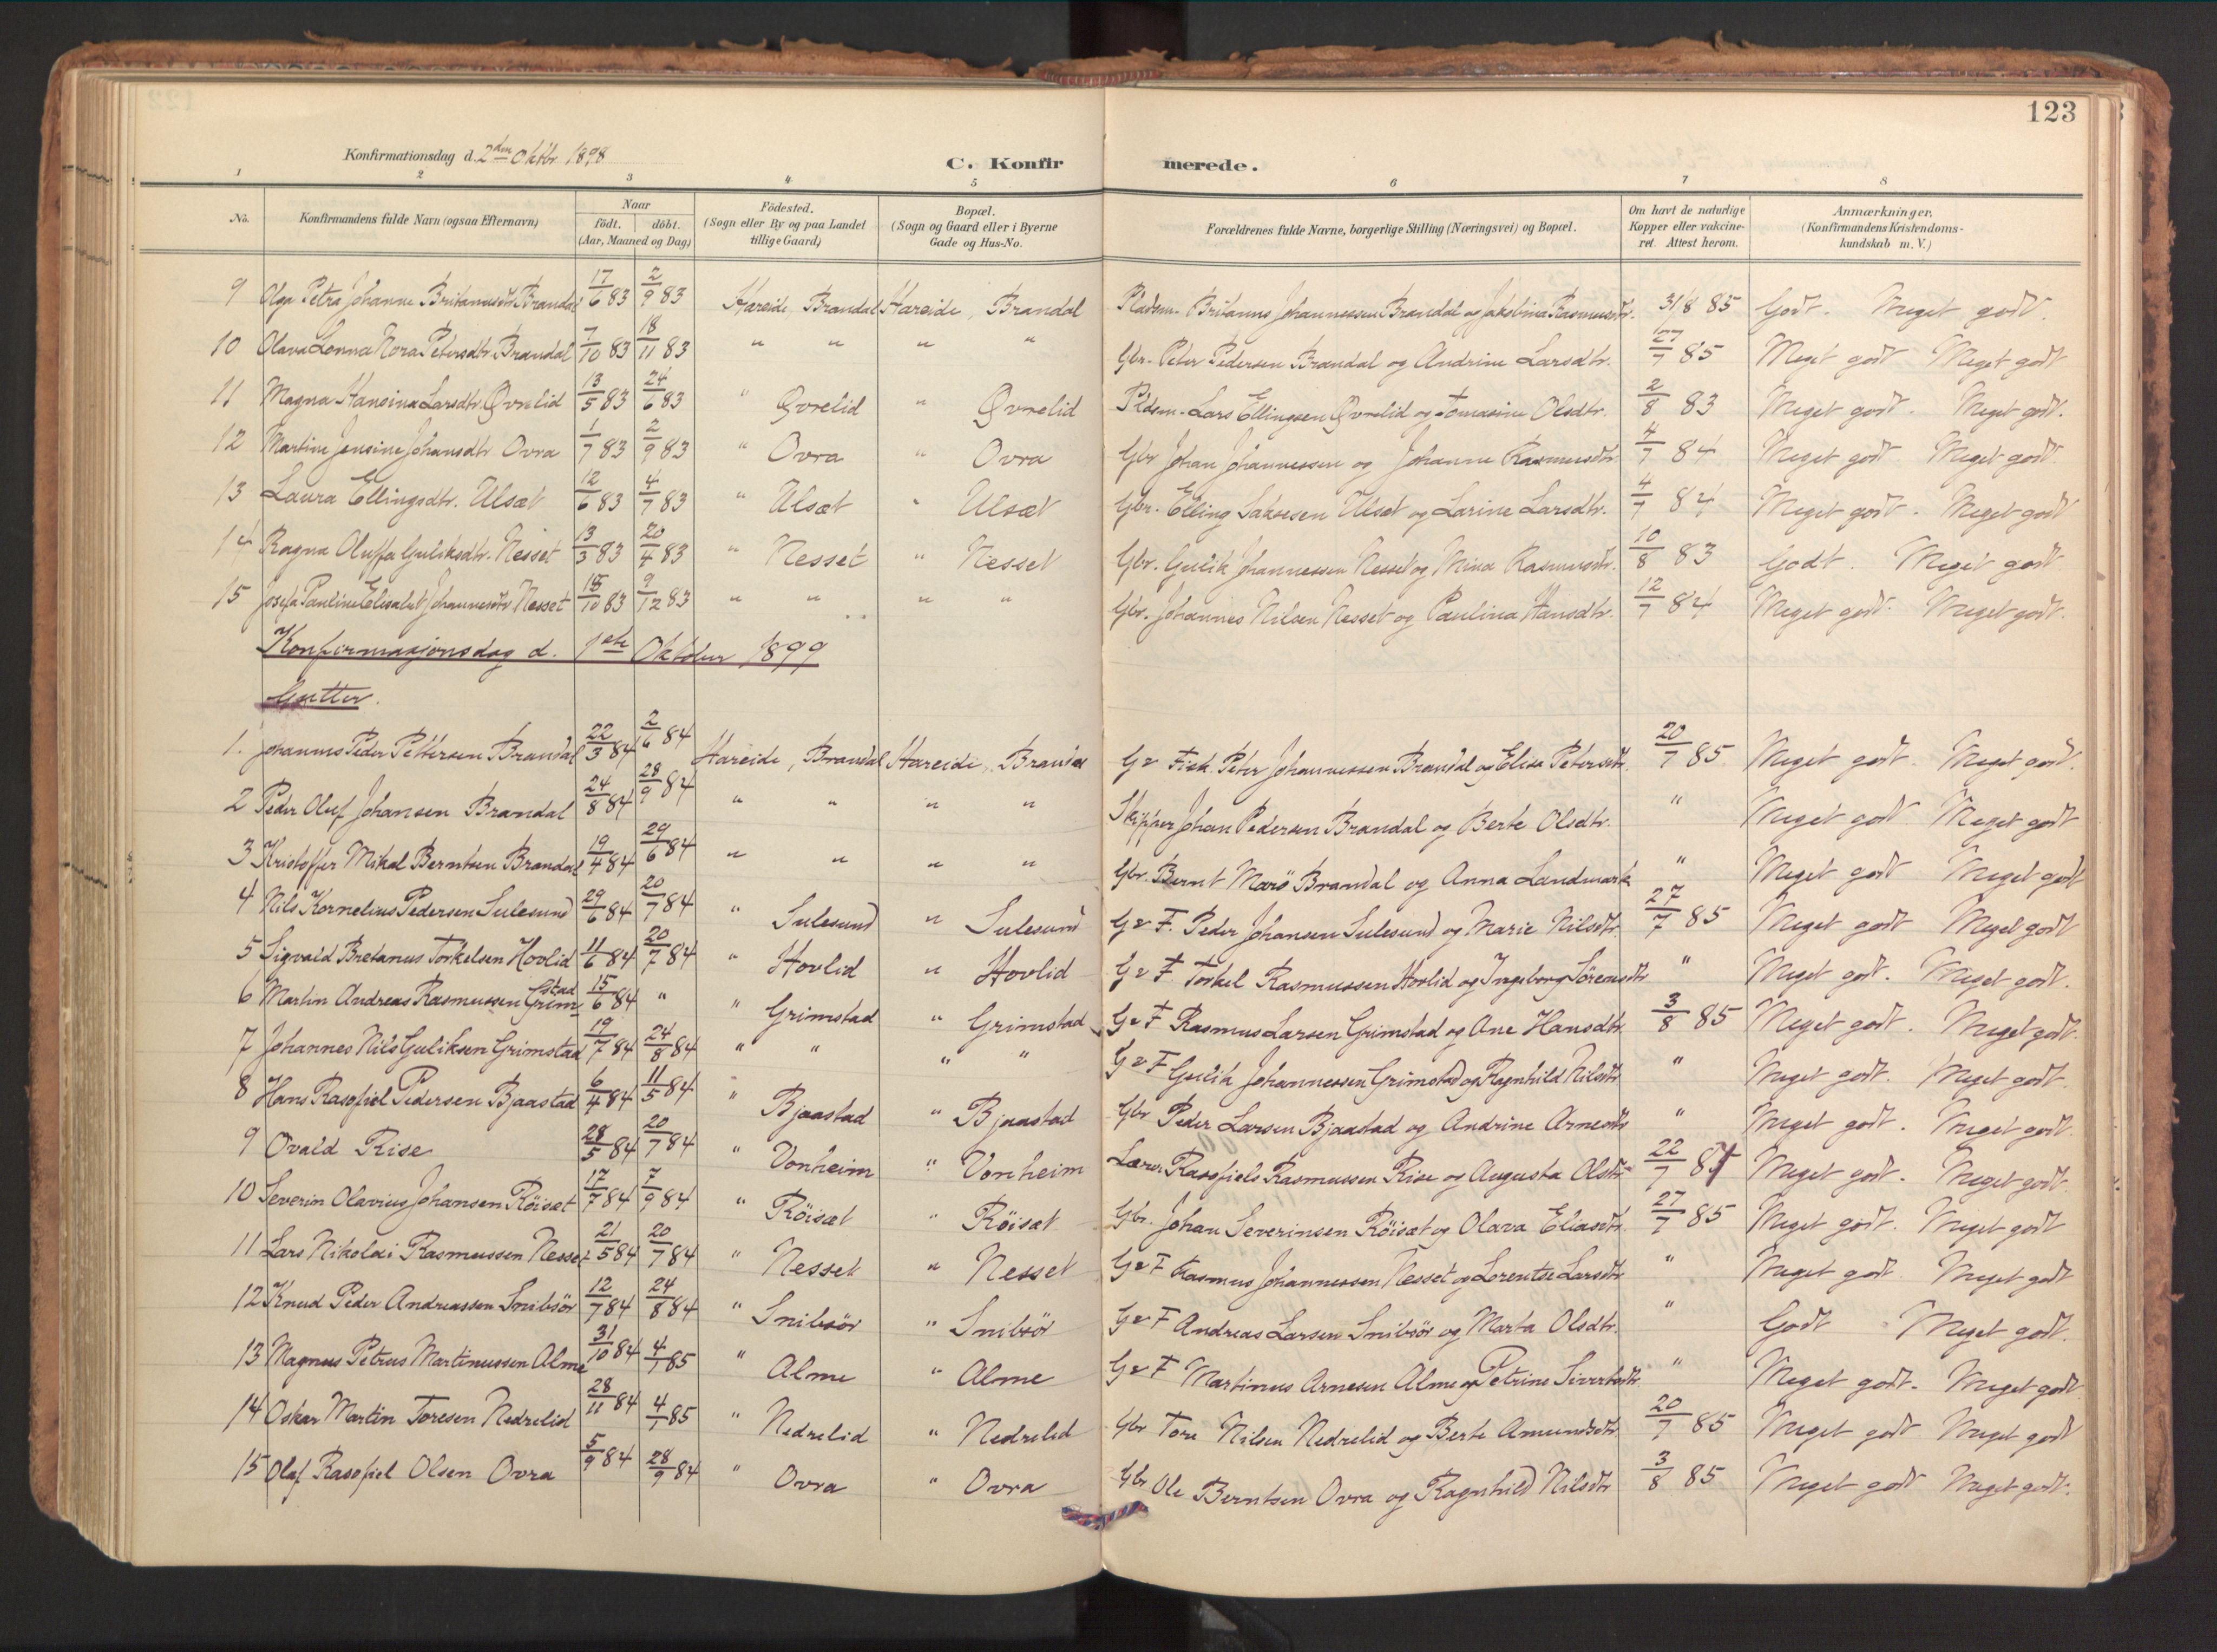 123
Konfirmationsdag d. 2den Oktbr 1898
C. Konfirmerede.
1 2 3 4 5 6 7 8
No. Konfirmandens fulde Navn (ogsaa Efternavn) Naar födt. döbt. (Aar, Maaned og Dag) Födested. (Sogn eller By og paa Landet tillige Gaard) Bopæl. (Sogn og Gaard eller i Byerne Gade og Hus-No. Forældrenes fulde Navne, borgerlige Stilling (Næringsvei) og Bopæl. Om havt de naturlige Kopper eller vakcineret. Attest herom. Anmærkninger. (Konfirmandens Kristendomskundskab m. V.)
9 Olga Petra Johanne Britanusdtr Brandal 17/6 83 2/9 83 Hareide, Brandal Hareide, Brandal Pladsm. Britanus Johannessen Brandal og Jakobina Rasmusdtr. 31/8 85 Godt. Meget godt.
10 Olava Lonna Nora Petersdtr. Brandal 7/10 83 18/11 83 " " " " Gbr. Peter Pedersen Brandal og Andrine Larsdtr. 27/7 85 Meget godt Meget godt
11 Magna Hansina Larsdtr. Øvrelid 13/5 83 24/6 83 " Øvrelid " Øvrelid Pldsm. Lars Ellingsen Øvrelid og Tomasine Olsdtr. 2/8 83 Meget godt. Meget godt.
12 Martine Jensine Johansdtr Ovra 1/7 83 2/9 83 " Ovra " Ovra Gbr Johan Johannessen og Johanne Rasmusdtr. 4/7 84 Meget godt Meget godt.
13 Laura Ellingsdtr. Ulsæt 12/6 83 4/7 83 " Ulsæt " Ulsæt Gbr. Elling Saksesen Ulsæt og Larine Larsdtr. 4/7 84 Meget godt. Meget godt
14 Ragna Oluffa Guliksdtr. Nesset 13/3 83 20/4 83 " Nesset " Nesset Gbr. Gulik Johannessen Nesset og Mina Rasmusdtr. 10/8 83 Godt. Meget godt
15 Josefa Pauline Elisabet Johannesdtr Nesset 15/10 83 9/12 83 " " " " Gbr. Johannes Nilsen Nesset og Paulina Hansdtr. 12/7 84 Meget godt. Meget godt.
Konfirmasjonsdag d. 1ste Oktober 1899
Gutter.
1. Johannes Peder Pettersen Brandal 22/3 84 2/6 84 Hareide, Brandal Hareide, Brandal G & Fisk. Peter Johannessen Brandal og Elisa Petersdtr. 20/7 85 Meget godt. Meget godt.
2 Peder Oluf Johansen Brandal 24/8 84 28/9 84 " " " " Skipper Johan Pedersen Brandal og Berte Olsdtr. " Meget godt Meget godt
3 Kristoffer Mikal Berntsen Brandal 19/4 84 29/6 84 " " " " Gbr. Bernt Marö Brandal og Anna Landmark " Meget godt Meget godt
4 Nils Kornelius Pedersen Sulesund 29/6 84 20/7 84 " Sulesund " Sulesund G & F. Peder Johansen Sulesund og Marie Nilsdtr. 27/7 85 Meget godt Meget godt
5 Sigvald Bretanus Torkelsen Hovlid 11/6 84 20/7 84 " Hovlid " Hovlid G & F. Torkel Rasmussen Hovlid og Ingeborg Sörensdtr " Meget godt. Meget godt.
6 Martin Andreas Rasmussen Grimstad 15/6 84 " " Grimstad " Grimstad G & F Rasmus Larsen Grimstad og Ane Hansdtr. 3/8 85 Meget godt. Meget godt.
7 Johannes Nils Guliksen Grimstad 19/7 84 24/8 84 " " " " G & F Gulik Johannessen Grimstad og Ragnhild Nilsdtr " Meget godt. Meget godt.
8 Hans Rasofiel Pedersen Bjaastad 6/4 84 11/5 84 " Bjaastad " Bjaastad Gbr Peder Larsen Bjaastad og Andrine Arnesdtr " Meget godt. Meget godt.
9 Ovald Rise 28/5 84 20/7 84 " Vonheim " Vonheim Lærer Rasofiels Rasmussen Rise og Augusta Olsdtr 22/7 Meget godt. Meget godt.
10 Severin Olavius Johansen Röisæt 17/7 84 7/9 84 " Röisæt " Röisæt Gbr. Johan Severinsen Röisæt og Olava Eliasdtr. 27/7 85 Meget godt. Meget godt
11 Lars Nikolai Rasmussen Nesset 21/5 84 20/7 84 " Nesset " Nesset G & F Rasmus Johannessen Nesset og Lorentse Larsdtr " Meget godt Meget godt
12 Knud Peder Andreassen Snibsör 12/7 84 24/8 84 " Snibsör " Snibsör G & F Andreas Larsen Snibsör og Marta Olsdtr. " Godt Meget godt.
13 Magnus Petrus Martinussen Alme 31/10 84 4/1 85 " Alme " Alme G & F Martinus Arnesen Alme og Petrine Sivertsdtr. " Meget godt. Meget godt
14 Oskar Martin Toresen Nedrelid 28/11 84 4/1 85 " Nedrelid " Nedrelid Gbr Tore Nilsen Nedrelid og Berte Amundsdtr 20/7 85 Meget godt Meget godt
15 Olaf Rasofiel Olsen Ovra 5/9 84 28/9 84 " Ovra " Ovra Gbr Ole Berntsen Ovra og Ragnhild Nilsdtr 3/8 85 Meget godt Meget godt.